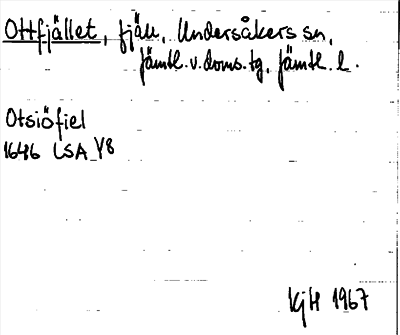 Ottfjället, fjäll, Undersåkers sn,
Jämtl. v. doms. tg, Jämtl. l.
Otsiöfiel
1646 LSA Y8
KjH 1967